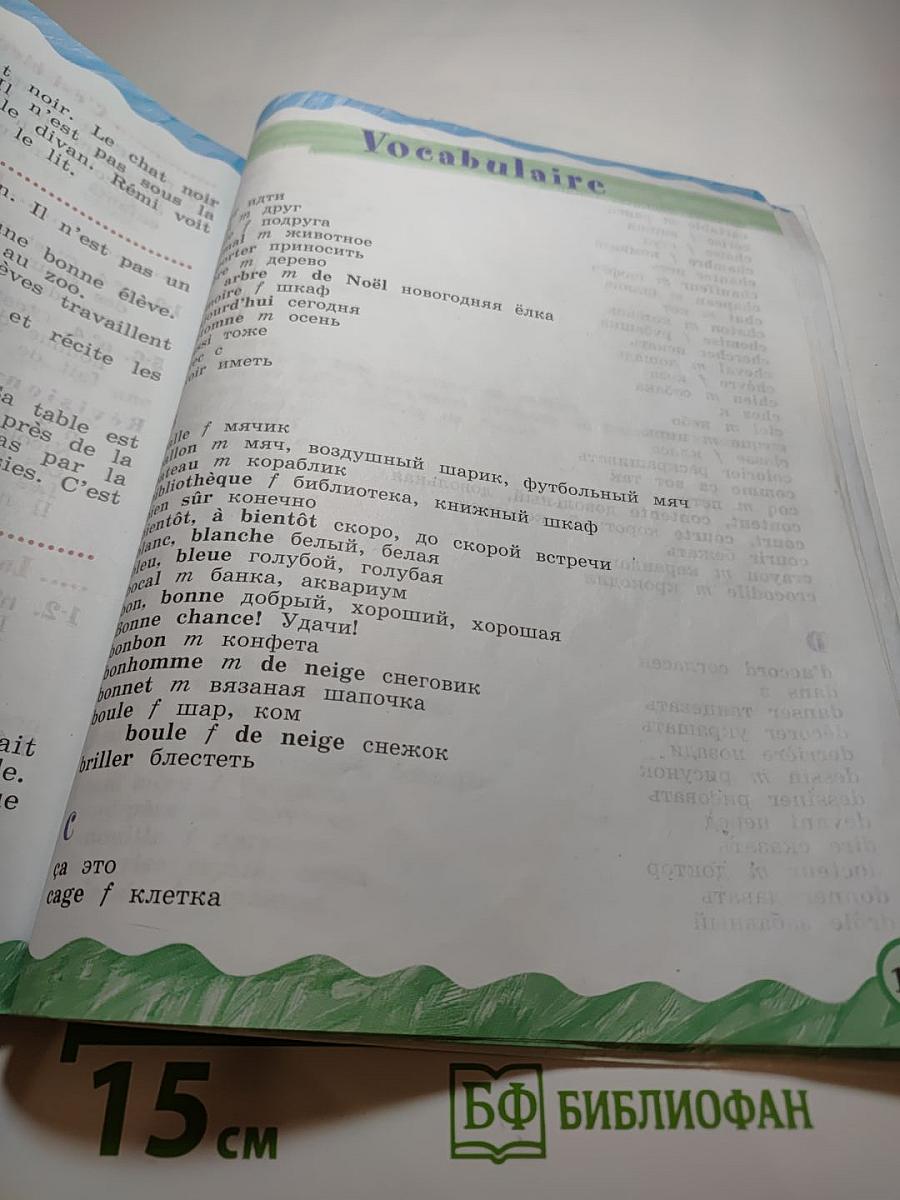 t noir. Le chat noir
Il n'est pas sous la
le divan. Rémi voit
le lit.
n. Il n'est pas un
une bonne élève.
au zoo.
èves travaillent
et récite les
sa table est
près de la
as par la
sies. C'est
ait
le.
ue
Vocabulaire
идти
m друг
f подруга
mal m животное
orter приносить
re m дерево
arbre m de Noël новогодняя ёлка
moire f шкаф
jourd'hui сегодня
tomne m осень
ssi тоже
ec с
oir иметь
alle f мячик
allon m мяч, воздушный шарик, футбольный мяч
ateau m кораблик
bibliothèque f библиотека, книжный шкаф
ien sûr конечно
bientôt, à bientôt скоро, до скорой встречи
blanc, blanche белый, белая
bleu, bleue голубой, голубая
bocal m банка, аквариум
bon, bonne добрый, хороший, хорошая
Bonne chance! Удачи!
bonbon m конфета
bonhomme m de neige снеговик
bonnet m вязаная шапочка
boule f шар, ком
boule f de neige снежок
briller блестеть
C
ça это
cage f клетка
15 см
БФ БИБЛИОФАН